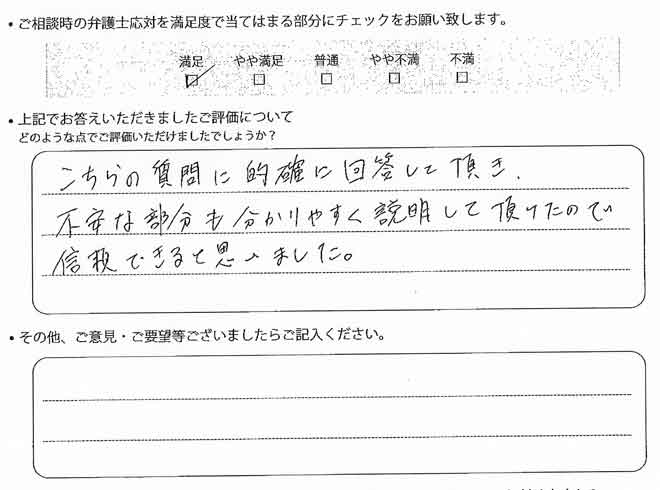 ・ご相談時の弁護士応対を満足度で当てはまる部分にチェックをお願い致します。
満足 やや満足 普通 やや不満 不満
☑ □ □ □ □
・上記でお答えいただきましたご評価について
どのような点でご評価いただけましたでしょうか？
こちらの質問に的確に回答して頂き、
不安な部分も分かりやすく説明して頂けたので
信頼できると思いました。
・その他、ご意見・ご要望等ございましたらご記入ください。